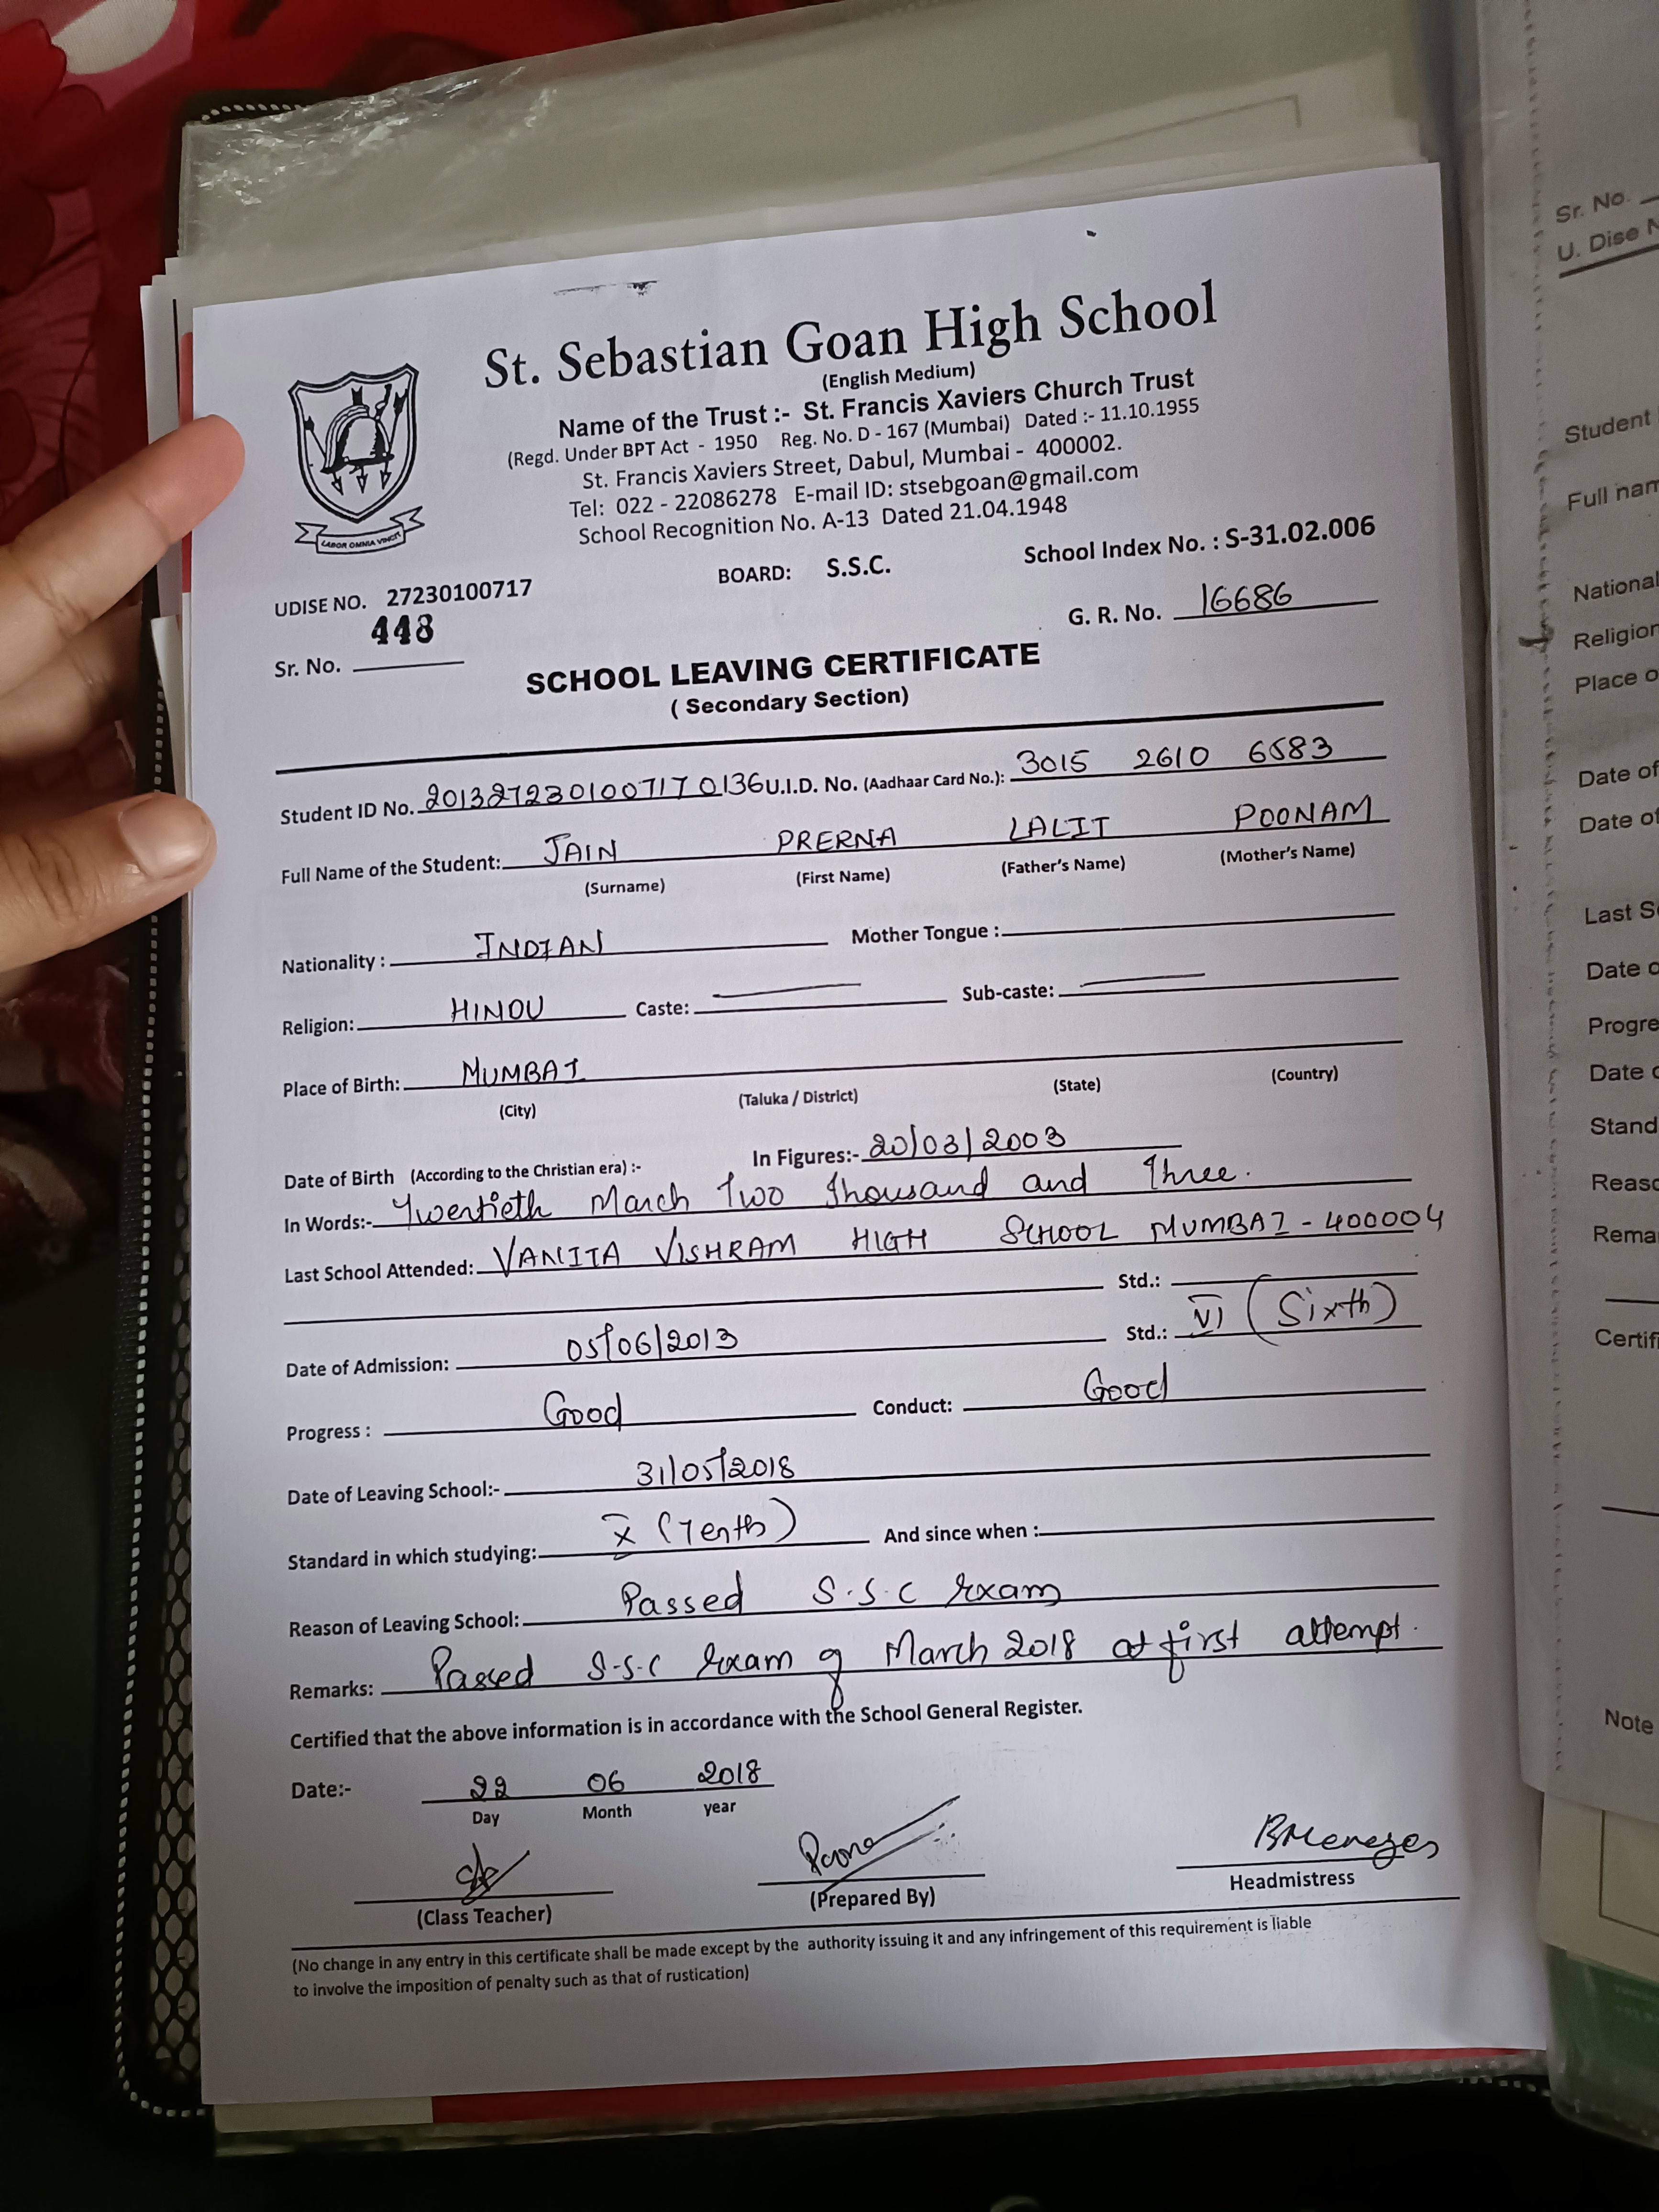 St. Sebastian Goan High School
(English Medium)
Name of the Trust :- St. Francis Xaviers Church Trust
(Regd. Under BPT Act - 1950 Reg. No. D - 167 (Mumbai) Dated :- 11.10.1955
St. Francis Xaviers Street, Dabul, Mumbai - 400002.
Tel: 022 - 22086278 E-mail ID: stsebgoan@gmail.com
School Recognition No. A-13 Dated 21.04.1948
LABOR OMNIA VINCIT
UDISE NO. 27230100717 BOARD: S.S.C. School Index No. : S-31.02.006
Sr. No. 448 G. R. No. 16686
SCHOOL LEAVING CERTIFICATE
( Secondary Section)
Student ID No. 2013272301007170136 U.I.D. No. (Aadhaar Card No.): 3015 2610 6583
Full Name of the Student: JAIN PRERNA LALIT POONAM
(Surname) (First Name) (Father's Name) (Mother's Name)
Nationality : INDIAN Mother Tongue :
Religion: HINDU Caste: Sub-caste:
Place of Birth: MUMBAI
(City) (Taluka / District) (State) (Country)
Date of Birth (According to the Christian era) :- In Figures:- 20/03/2003
In Words:- Twentieth March Two Thousand and Three.
Last School Attended: VANITA VISHRAM HIGH SCHOOL MUMBAI - 400004
Std.:
Date of Admission: 05/06/2013 Std.: VI (Sixth)
Progress : Good Conduct: Good
Date of Leaving School:- 31/05/2018
Standard in which studying: X (Tenth) And since when :
Reason of Leaving School: Passed S.S.C Exam
Remarks: Passed S.S.C Exam of March 2018 at first attempt.
Certified that the above information is in accordance with the School General Register.
Date:- 22 06 2018
Day Month year
BMenezes
(Class Teacher) (Prepared By) Headmistress
(No change in any entry in this certificate shall be made except by the authority issuing it and any infringement of this requirement is liable
to involve the imposition of penalty such as that of rustication)
Sr. No.
U. Dise N
Student
Full nam
National
Religion
Place o
Date of
Date of
Last S
Date o
Progre
Date o
Stand
Reaso
Rema
Certif
Note